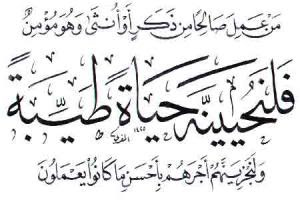 مَنْ عَمِلَ صَالِحًا مِنْ ذَكَرٍ أَوْ أُنْثَى وَهُوَ مُؤْمِنٌ
فَلَنُحْيِيَنَّهُ حَيَاةً طَيِّبَةً
وَلَنَجْزِيَنَّهُمْ أَجْرَهُمْ بِأَحْسَنِ مَا كَانُوا يَعْمَلُونَ